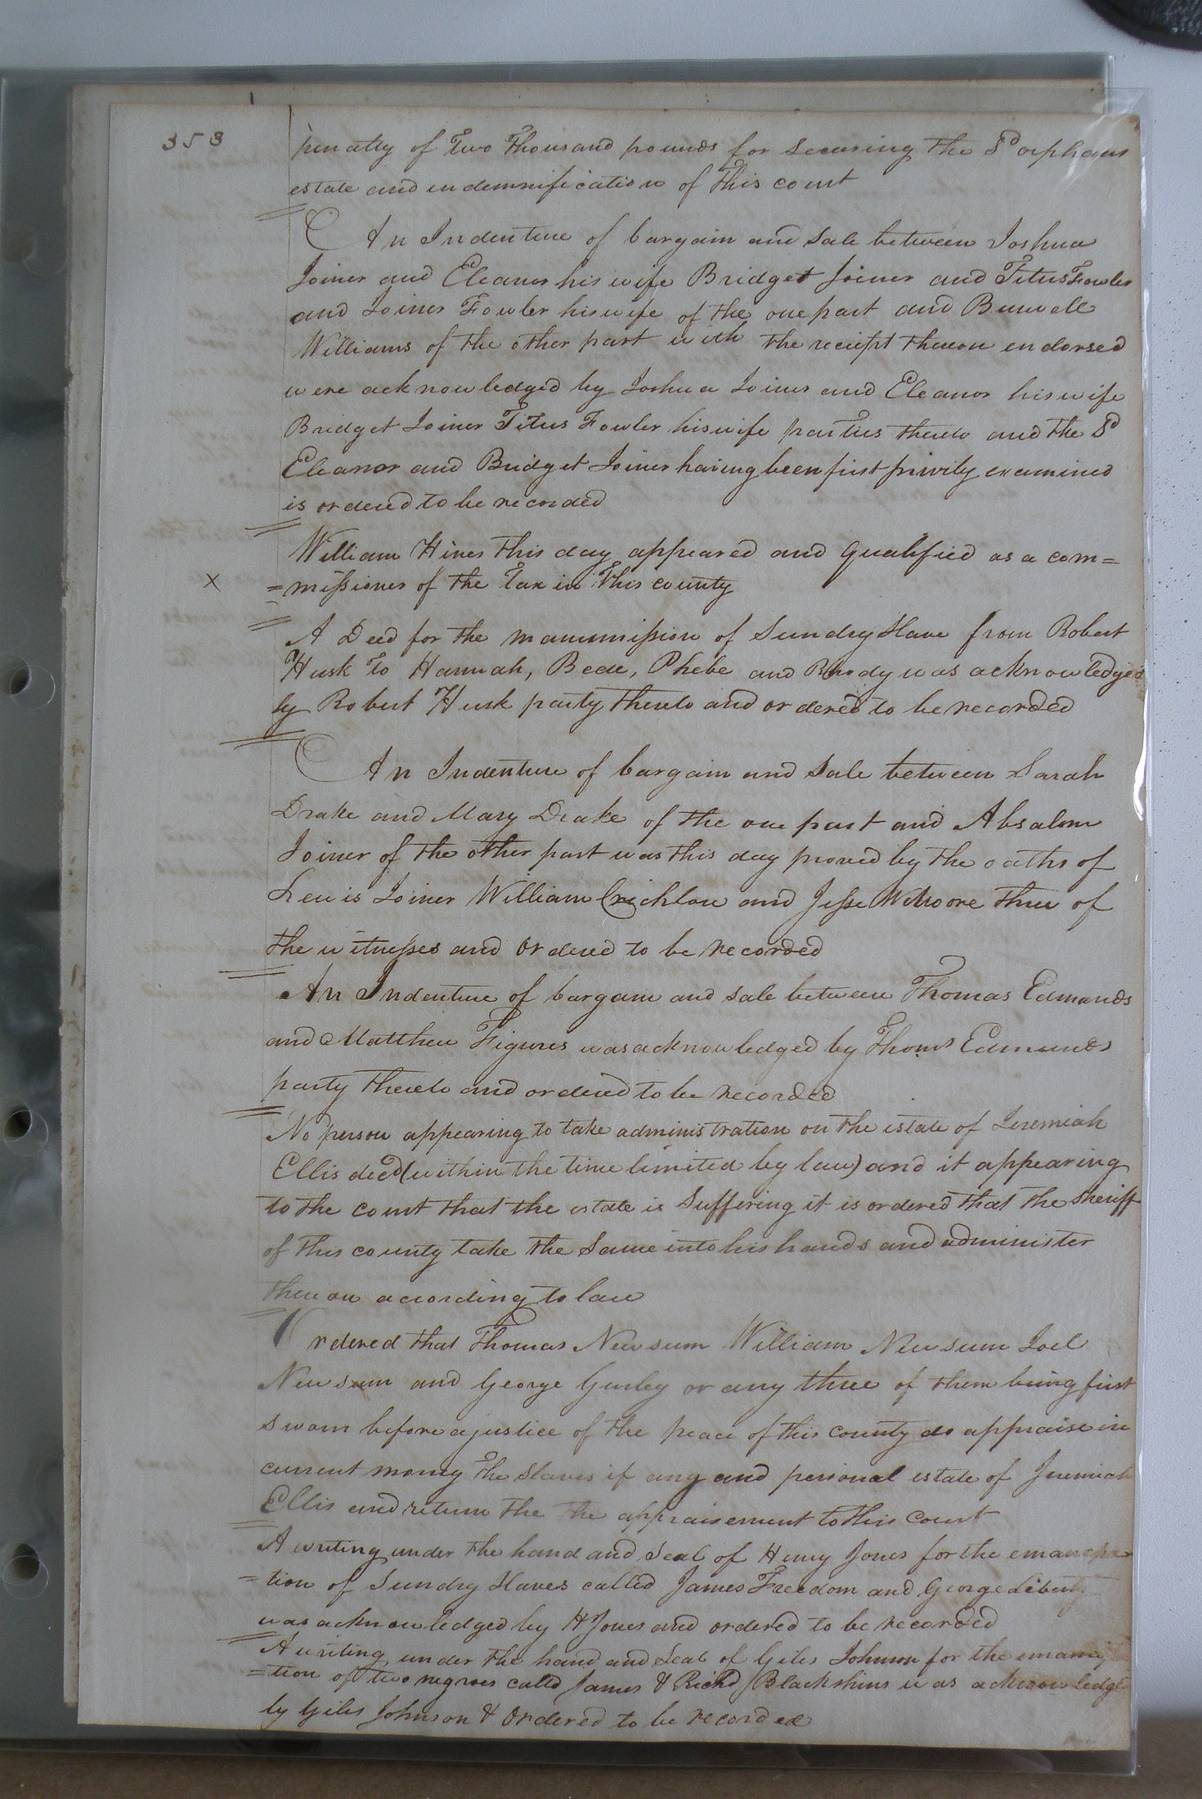 353
penalty of Two Thousand pounds for securing the Sd orphans
estate and indemnification of this court
An Indenture of bargain and Sale between Joshua
Joiner and Eleanor his wife Bridget Joiner and Titus Fowler
and Joiner Fowler his wife of the one part and Burwell
Williams of the other part with the reciept thereon endorsed
were acknowledged by Joshua Joiner and Eleanor his wife
Bridget Joiner Titus Fowler his wife parties thereto and the Sd
Eleanor and Bridget Joiner having been first privily examined
is ordered to be recorded
William Hines this day appeared and qualified as a com=
x =missioner of the Tax in this county
A Deed for the manumission of Sundry Slave from Robert
Husk to Hannah, Bede, Phebe and Rhody was acknowledged
by Robert Husk party thereto and ordered to be recorded
An Indenture of bargain and Sale between Sarah
Drake and Mary Drake of the one part and Absalom
Joiner of the other part was this day proved by the oaths of
Lewis Joiner William Crichlow and Jesse Whoore three of
the witnesses and ordered to be recorded
An Indenture of bargain and sale between Thomas Edmunds
and Matthew Figures was acknowledged by Thoms Edmunds
party thereto and ordered to be recorded
No person appearing to take administration on the estate of Jeremiah
Ellis decd (within the time limited by law) and it appearing
to the court that the estate is Suffering it is ordered that the Sheriff
of this county take the Same into his hands and administer
thereon according to law
Ordered that Thomas Newsum William Newsum Joel
Newsum and George Gurley or any three of them being first
sworn before a justice of the peace of this county do appraise in
current money the Slaves if any and personal estate of Jeremiah
Ellis and return the the appraisement to this Court
A writing under the hand and Seal of Henry Jones for the emancipa
=tion of Sundry Slaves called James Freedom and George Liberty
was acknowledged by H Jones and ordered to be recorded
A writing under the hand and Seal of Giles Johnson for the emancip
=tion of two negroes called James & Richd Blackshins was acknowledgd
by Giles Johnson & Ordered to be recorded